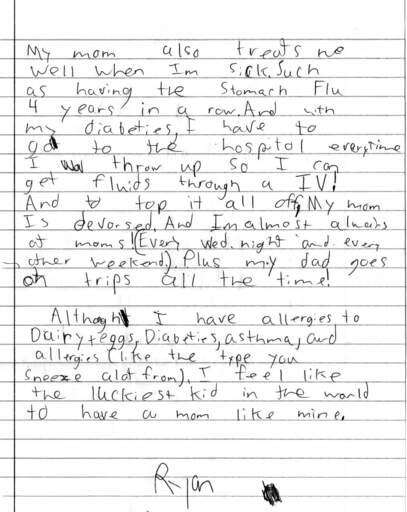 My mom also treats me
well when Im sick. Such
as having the Stomach Flu
4 years in a row. And with
my diabeties, I have to
go to the hospitol everytime
I throw up so I can
get fluids through a IV!
And to top it all off, My mom
Is devorsed. And Im almost always
at moms! (Every Wed. night and every
other weekend). Plus my dad goes
on trips all the time!
Althogh I have allergies to
Dairy + eggs, Diabeties, asthma, and
allergies (like the type you
sneeze alot from), I feel like
the luckiest kid in the world
to have a mom like mine.
Ryan